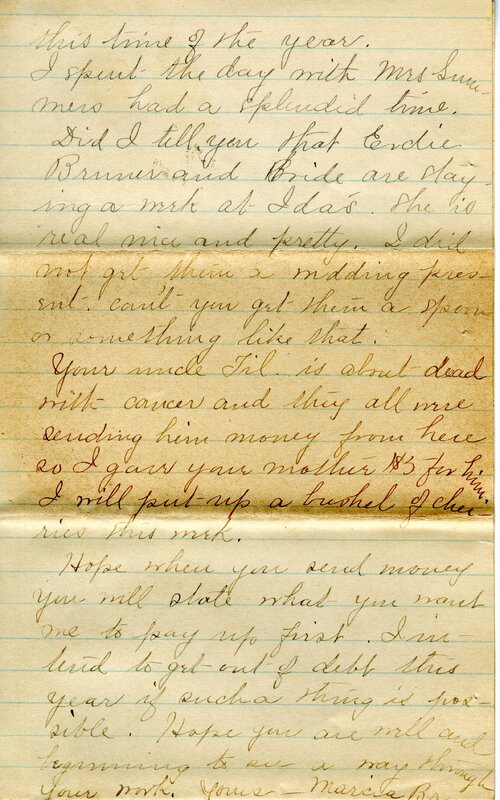 this time of the year.
I spent the day with Mrs Sum-
mers had a splendid time.
Did I tell you that Erdie
Bruner and Bride are stay-
ing a week at Ida's. She is
real nice and pretty. I did
not get them a wedding pres-
ent. can't you get them a spoon
or something like that.
Your uncle Til. is about dead
with cancer and they all were
sending him money from here
so I gave your mother $5 for him.
I will put up a bushel of cher
ries this week.
Hope when you send money
you will state what you want
me to pay up first. I in-
tend to get out of debt this
year if such a thing is pos-
sible. Hope you are well and
beginning to see a way through
your work. Yours - Marcia